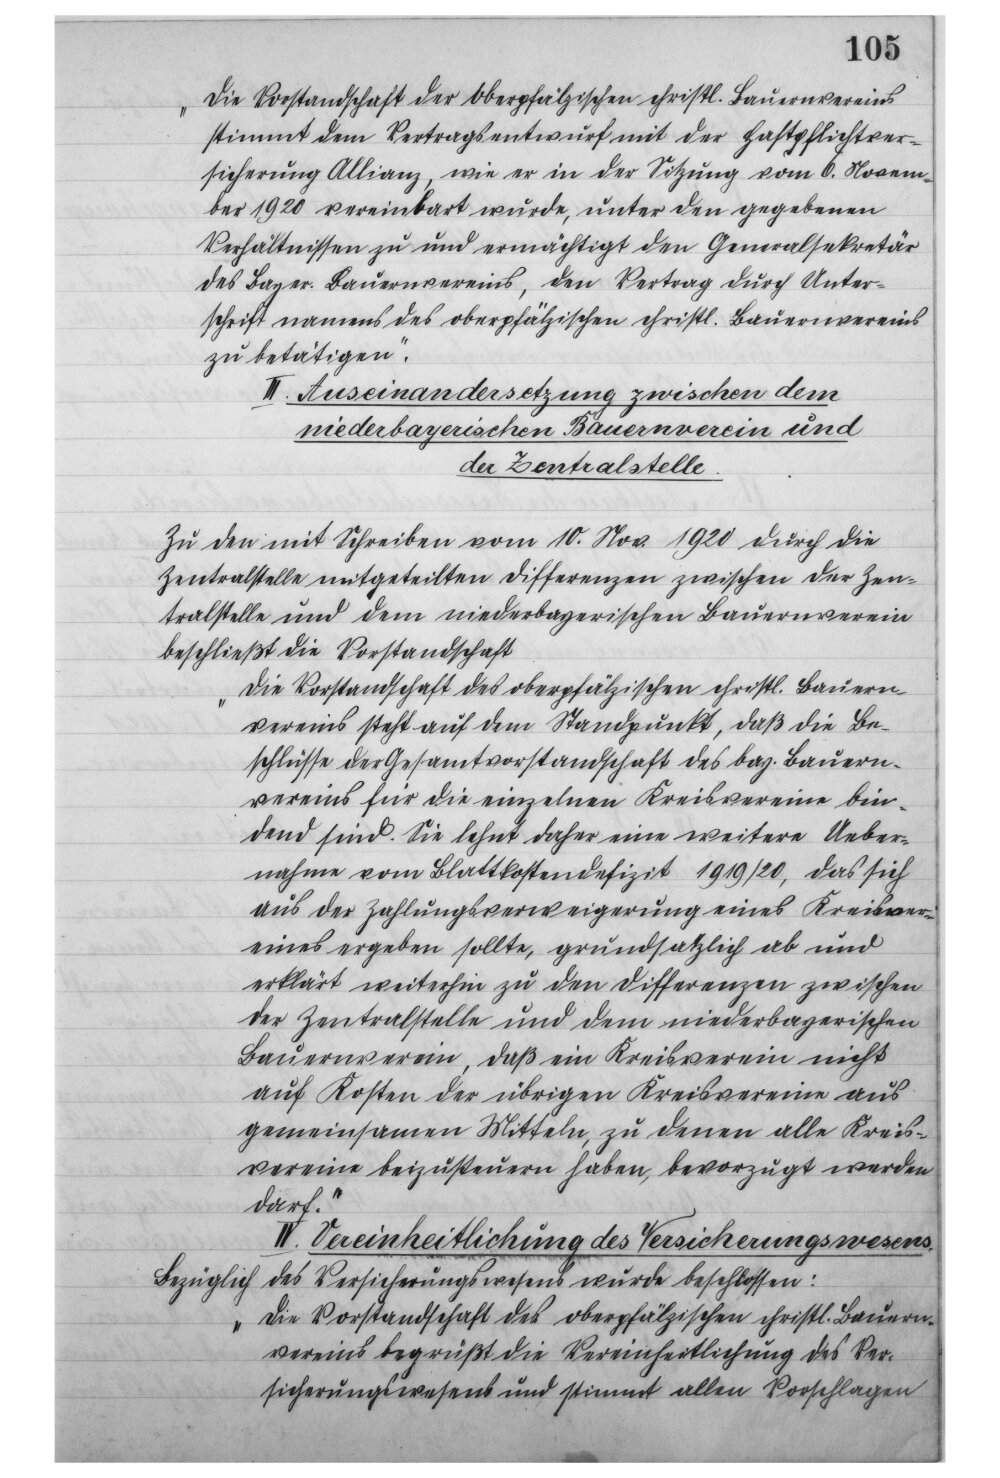 105
„Die Vorstandschaft der Oberpfälzischen christl. Bauernvereins
stimmt dem Vertragsentwurf mit der Haftpflichtver-
sicherung Allianz, wie er in der Sitzung vom 6. Novem-
ber 1920 vereinbart wurde, unter den gegebenen
Verhältnissen zu und ermächtigt den Generalsekretär
des Bayer. Bauernvereins, den Vertrag durch Unter-
schrift namens des oberpfälzischen christl. Bauernvereins
zu betätigen".
III. Auseinandersetzung zwischen dem
niederbayerischen Bauernverein und
der Zentralstelle.
Zu den mit Schreiben vom 10. Nov. 1920 durch die
Zentralstelle mitgeteilten Differenzen zwischen der Zen-
tralstelle und dem niederbayerischen Bauernverein
beschließt die Vorstandschaft
„Die Vorstandschaft des oberpfälzischen christl. Bauern-
vereins steht auf dem Standpunkt, daß die Be-
schlüsse der Gesamtvorstandschaft des bay. Bauern-
vereins für die einzelnen Kreisvereine bin-
dend sind. Sie lehnt daher eine weitere Ueber-
nahme vom Blattkostendefizit 1919/20, das sich
aus der Zahlungsverweigerung eines Kreisver-
eines ergeben sollte, grundsätzlich ab und
erklärt weiterhin zu den Differenzen zwischen
der Zentralstelle und dem niederbayerischen
Bauernverein, daß ein Kreisverein nicht
auf Kosten der übrigen Kreisvereine aus
gemeinsamen Mitteln, zu denen alle Kreis-
vereine beizusteuern haben, bevorzugt werden
darf."
IV. Vereinheitlichung des Versicherungswesens.
Bezüglich des Versicherungswesens wurde beschlossen:
„Die Vorstandschaft des oberpfälzischen christl. Bauern-
vereins begrüßt die Vereinheitlichung des Ver-
sicherungswesens und stimmt allen Vorschlagen